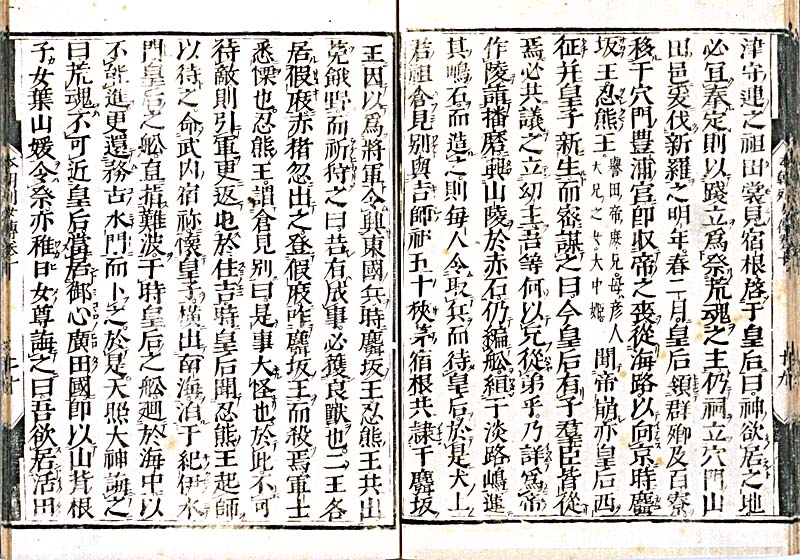 津守連之祖田裳見宿根啓于皇后曰神欲居之地
必宜奉定則以踐立爲祭荒魂之主仍祠立穴門山
田邑爰伐新羅之明年春二月皇后領群卿及百寮
移于穴門豊浦宮卽収帝之喪從海路以向京時麛
坂王忍熊王
譽田帝庶兄母彦人
大兄之女大中媛
聞帝崩亦皇后西
征并皇子新生而密謀之曰今皇后有子羣臣皆從
焉必共議之立幼主吾等何以兄從弟乎乃詳爲帝
作陵詣播磨興山陵於赤石仍編舩絙于淡路嶋運
其嶋石而造之則毎人令取兵而待皇后於是犬上
君祖倉見別與吉師祖五十狹茅宿根共隷于麛坂
王因以爲將軍令興東國兵時麛坂王忍熊王共出
菟餓野而祈狩之曰若有成事必獲良獸也二王各
居假庪赤猪忽出之登假庪咋麛坂王而殺焉軍士
悉慄也忍熊王謂倉見別曰是事大怪也於此不可
待敵則引軍更返屯於住吉時皇后聞忍熊王起師
以待之命武内宿祢懷皇子横出南海泊于紀伊水
門皇后之舩直指難波于時皇后之舩廻於海中以
不能進更還務古水門而卜之於是天照大神誨之
曰荒魂不可近皇后當居御心廣田國卽以山背根
子女葉山媛令祭亦稚日女尊誨之曰吾欲居活田